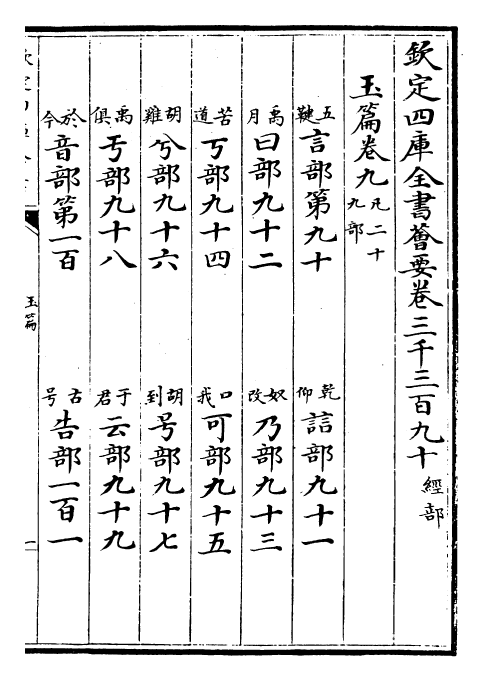 欽定四庫全書薈要卷三千三百九十 經部
玉篇卷九 凡二十九部
五鞬言部第九十 乾仰誩部九十一
禹月曰部九十二 奴改乃部九十三
苦道丂部九十四 口我可部九十五
胡雞兮部九十六 胡到号部九十七
禹俱亐部九十八 于君云部九十九
於今音部第一百 古号告部一百一
玉篇